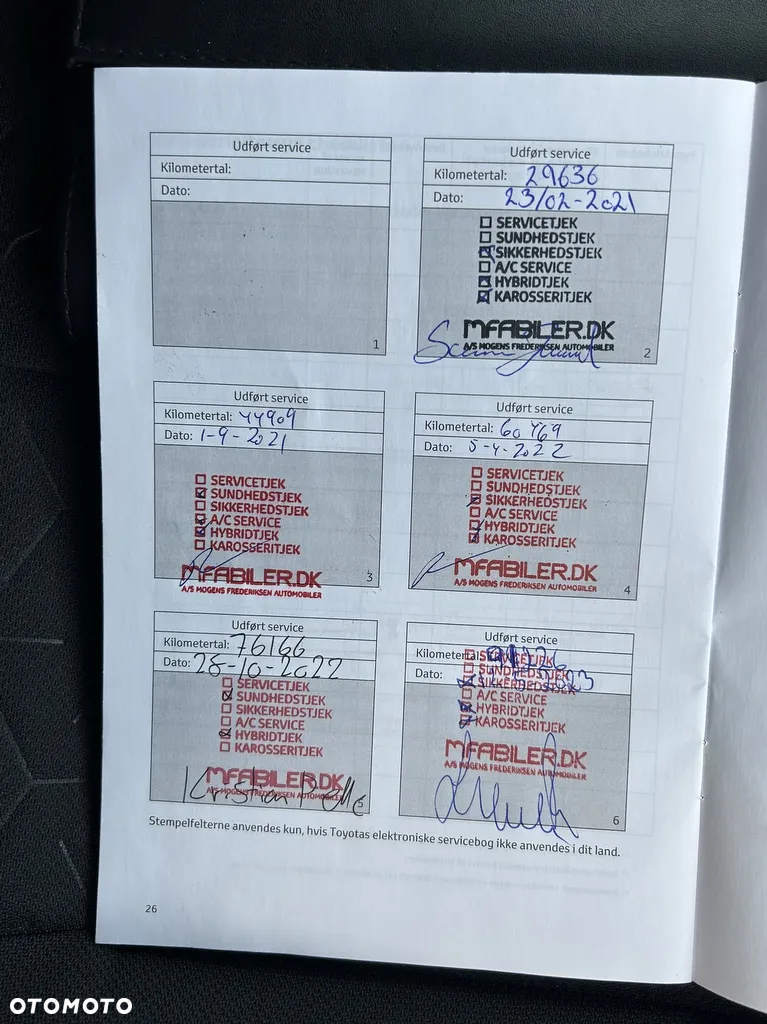 Udført service
Kilometertal:
Dato:
1
Udført service
Kilometertal: 29636
Dato: 23/02-2021
SERVICETJEK
SUNDHEDSTJEK
SIKKERHEDSTJEK
A/C SERVICE
HYBRIDTJEK
KAROSSERITJEK
MFABILER.DK
A/S MOGENS FREDERIKSEN AUTOMOBILER
2
Udført service
Kilometertal: 44909
Dato: 1-9-2021
SERVICETJEK
SUNDHEDSTJEK
SIKKERHEDSTJEK
A/C SERVICE
HYBRIDTJEK
KAROSSERITJEK
MFABILER.DK
A/S MOGENS FREDERIKSEN AUTOMOBILER
3
Udført service
Kilometertal: 60469
Dato: 5-4-2022
SERVICETJEK
SUNDHEDSTJEK
SIKKERHEDSTJEK
A/C SERVICE
HYBRIDTJEK
KAROSSERITJEK
MFABILER.DK
A/S MOGENS FREDERIKSEN AUTOMOBILER
4
Udført service
Kilometertal: 76166
Dato: 28-10-2022
SERVICETJEK
SUNDHEDSTJEK
SIKKERHEDSTJEK
A/C SERVICE
HYBRIDTJEK
KAROSSERITJEK
MFABILER.DK
A/S MOGENS FREDERIKSEN AUTOMOBILER
Kristian
5
Udført service
Kilometertal:
Dato:
SERVICETJEK
SUNDHEDSTJEK
SIKKERHEDSTJEK
A/C SERVICE
HYBRIDTJEK
KAROSSERITJEK
MFABILER.DK
A/S MOGENS FREDERIKSEN AUTOMOBILER
6
Stempelfelterne anvendes kun, hvis Toyotas elektroniske servicebog ikke anvendes i dit land.
26
OTOMOTO